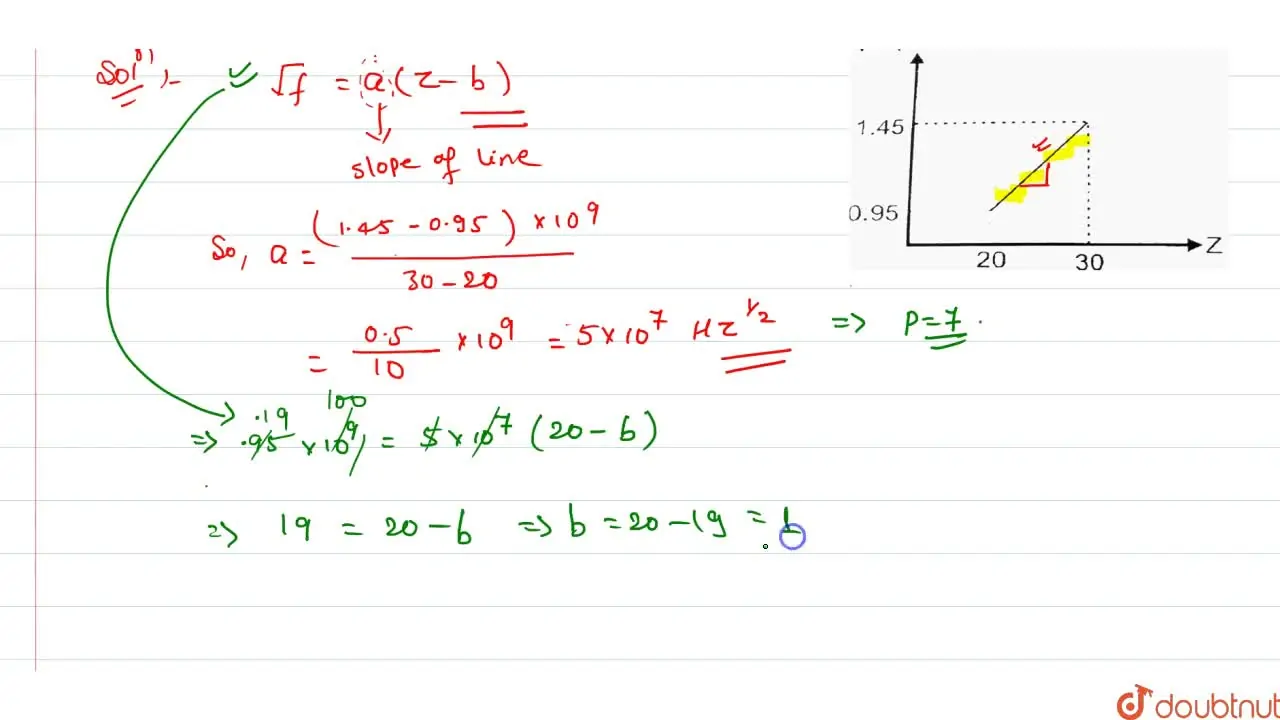 Solⁿ) :-
√f = a (Z - b)
slope of line
So, a = (1.45 - 0.95) × 10⁹
30 - 20
= 0.5/10 × 10⁹ = 5 × 10⁷ HZ^1/2 => P = 7.
.19 100
=> .95 × 10⁹ = 5 × 10⁷ (20 - b)
=> 19 = 20 - b => b = 20 - 19 = 1
1.45
0.95
Z
20 30
doubtnut